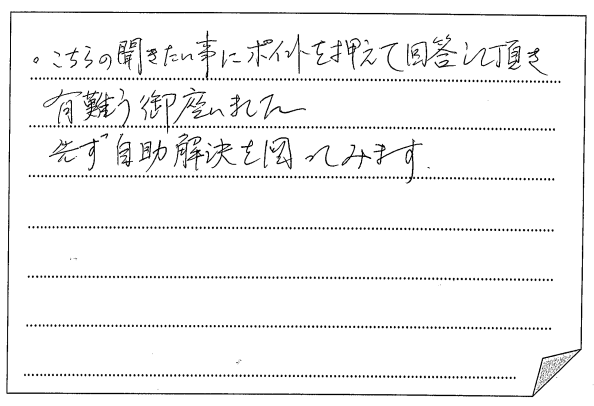 。こちらの聞きたい事にポイントを押えて回答して頂き
有難う御座いました
先ず自助解決を図ってみます.